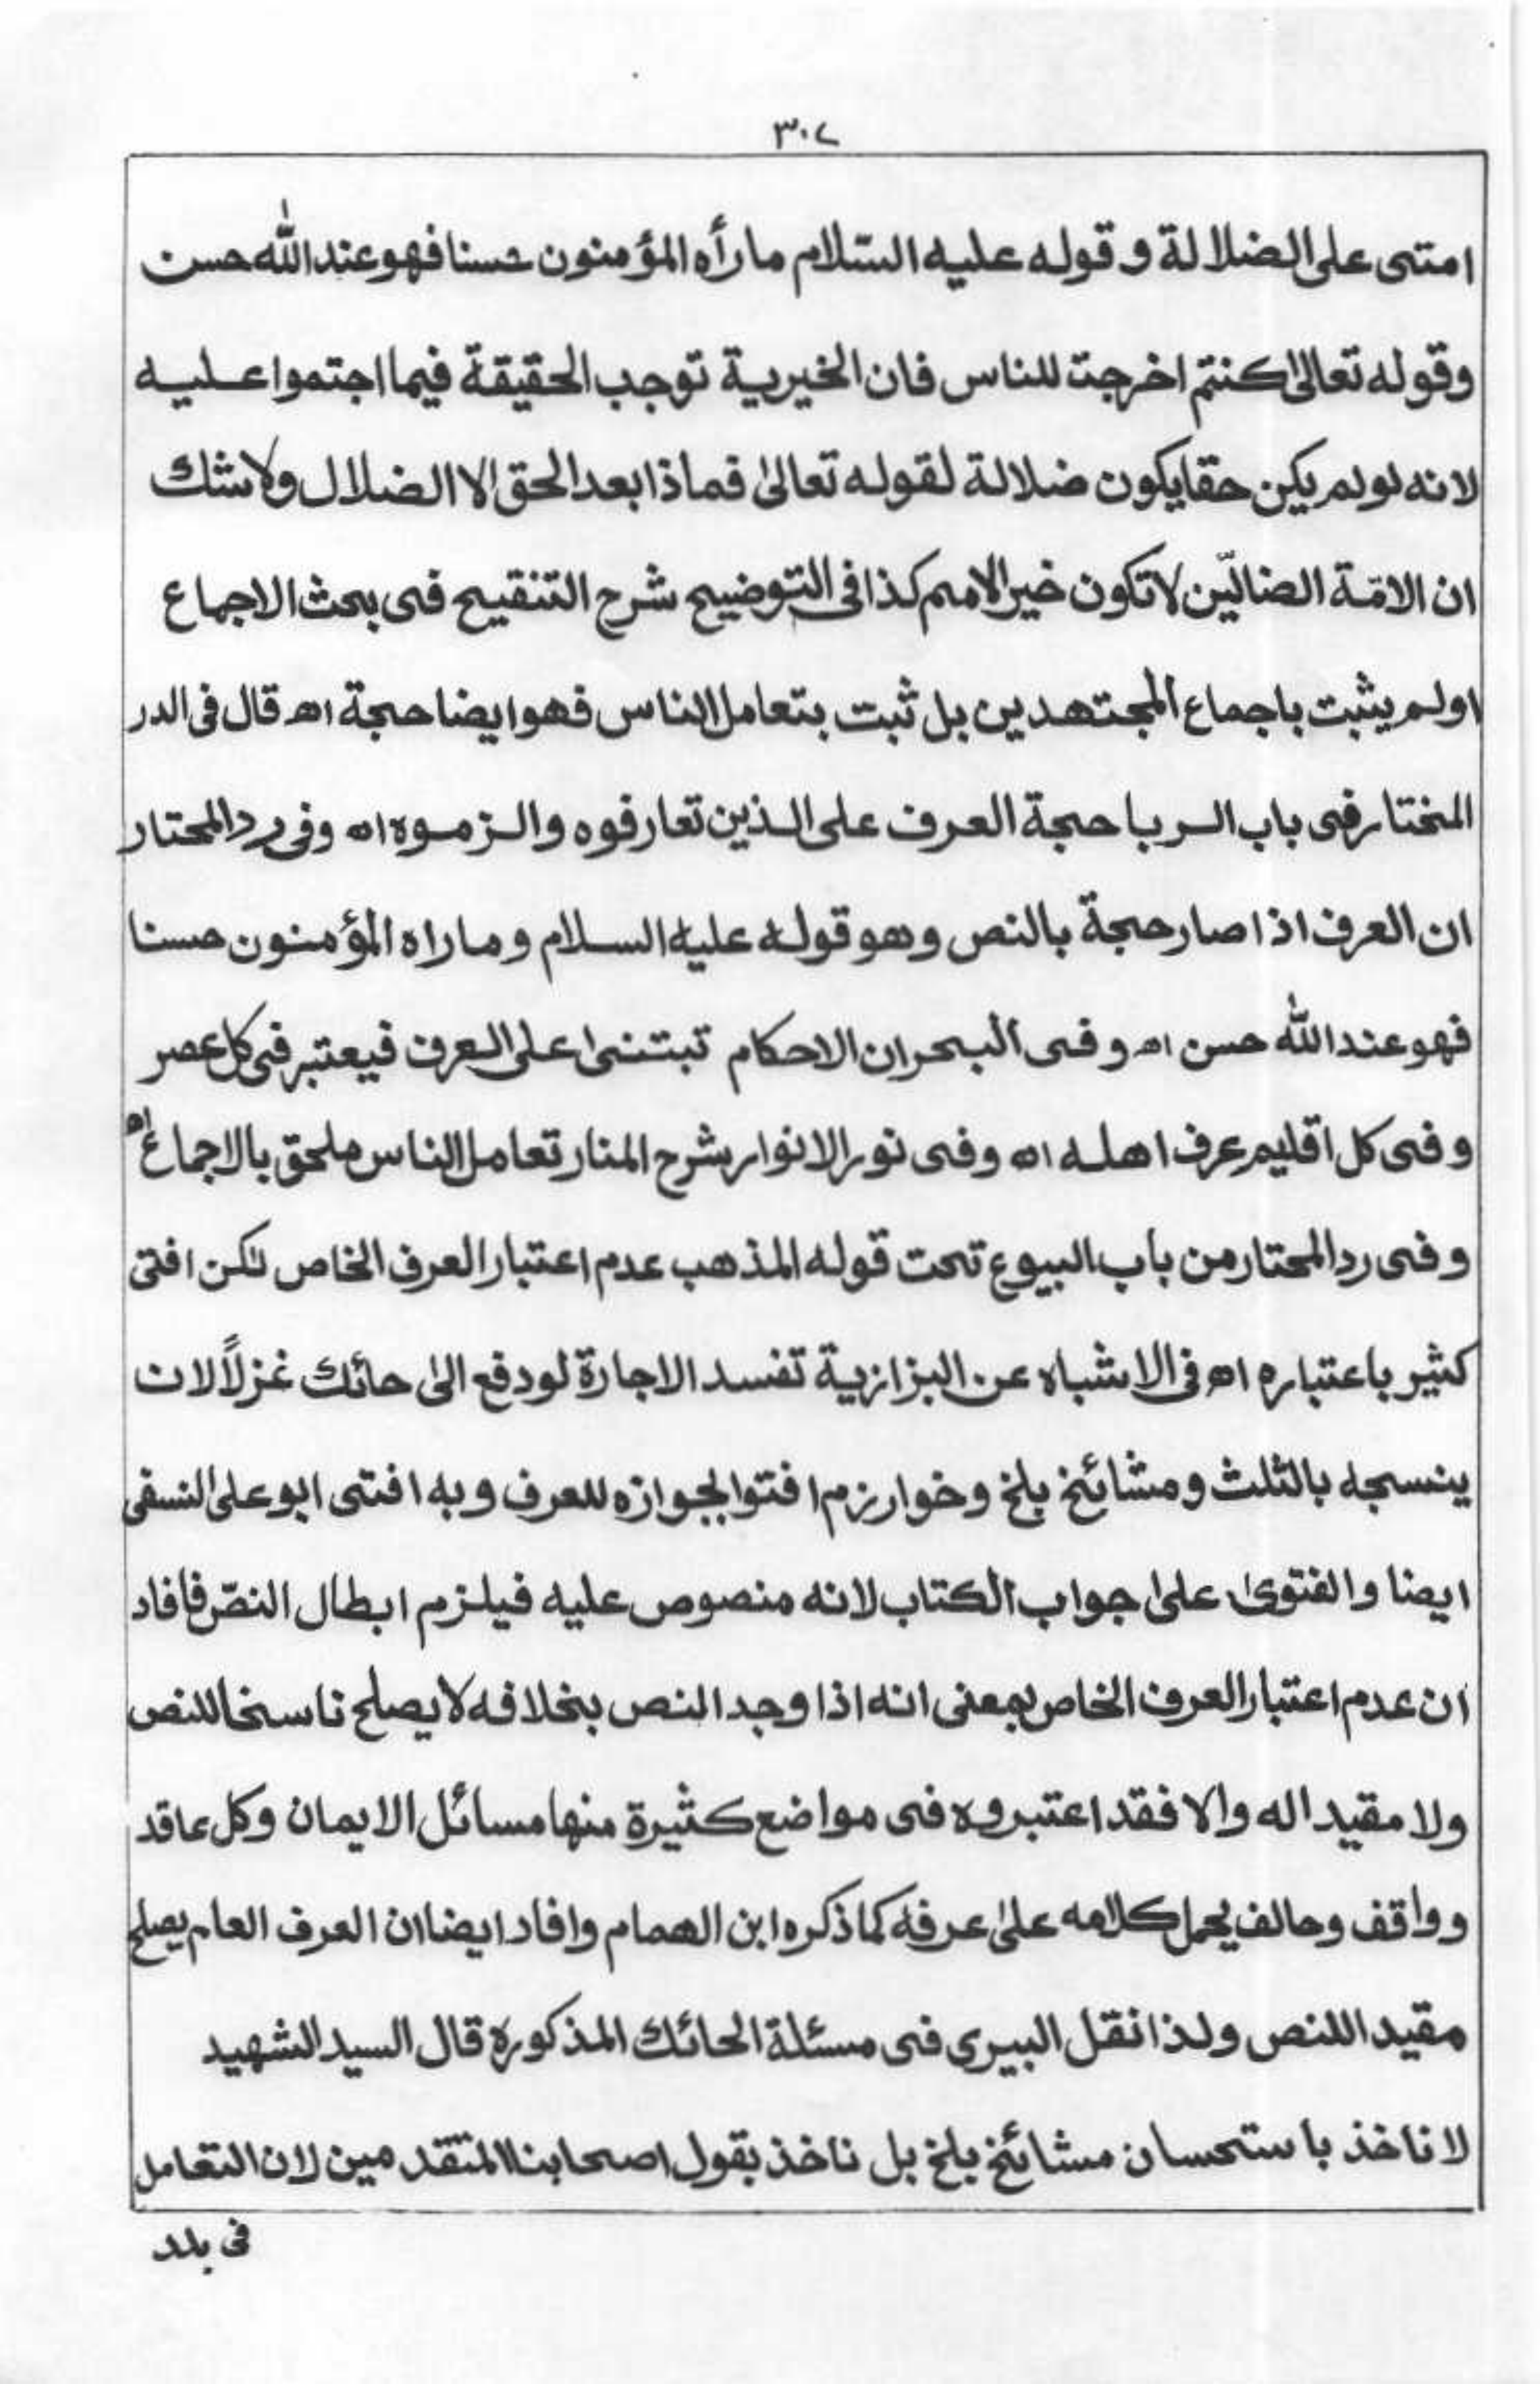 ٣٠٧
امتى على الضلالة و قوله عليه السّلام ما رأه المؤمنون حسنا فهو عند الله حسن
وقوله تعالىٰ كنتم اخرجت للناس فان الخيرية توجب الحقيقة فيما اجتموا عليه
لانه لو لم يكن حقا يكون ضلالة لقوله تعالىٰ فما ذا بعد الحق الا الضلال ولا شك
ان الامّة الضالّين لا تكون خير الامم كذا فى التوضيح شرح التنقيح فى بحث الاجماع
اولم يثبت باجماع المجتهدين بل ثبت بتعامل الناس فهو ايضا حجة اه قال فى الدر
المختار فى باب الربا حجة العرف على الذين تعارفوه والزموه اه وفى رد المحتار
ان العرف اذا صار حجة بالنص وهو قوله عليه السلام وما راه المؤمنون حسنا
فهو عند الله حسن اه و فى البحر ان الاحكام تبتنىٰ على العرف فيعتبر فى كل عصر
و فى كل اقليم عرف اهله اه وفى نور الانوار شرح المنار تعامل الناس ملحق بالاجماع اه
و فى رد المحتار من باب البيوع تحت قوله المذهب عدم اعتبار العرف الخاص لكن افتى
كثير باعتباره اه فى الاشباه عن البزازية تفسد الاجارة لو دفع الىٰ حائك غزلاً لان
ينسجه بالثلث و مشائخ بلخ و خوارزم افتوا بجوازه للعرف و به افتى ابو على النسفى
ايضا و الفتوىٰ علىٰ جواب الكتاب لانه منصوص عليه فيلزم ابطال النصّ فافاد
ان عدم اعتبار العرف الخاص بمعنى انه اذا وجد النص بخلافه لا يصلح ناسخا للنص
ولا مقيدا له والا فقد اعتبروه فى مواضع كثيرة منها مسائل الايمان وكل عاقد
و واقف وحالف يحمل كلامه علىٰ عرفه كما ذكره ابن الهمام وافاد ايضا ان العرف العام يصلح
مقيدا للنص ولذا نقل البيرى فى مسئلة الحائك المذكورة قال السيد الشهيد
لا ناخذ باستحسان مشائخ بلخ بل ناخذ بقول اصحابنا المتقدمين لان التعامل
فى بلد